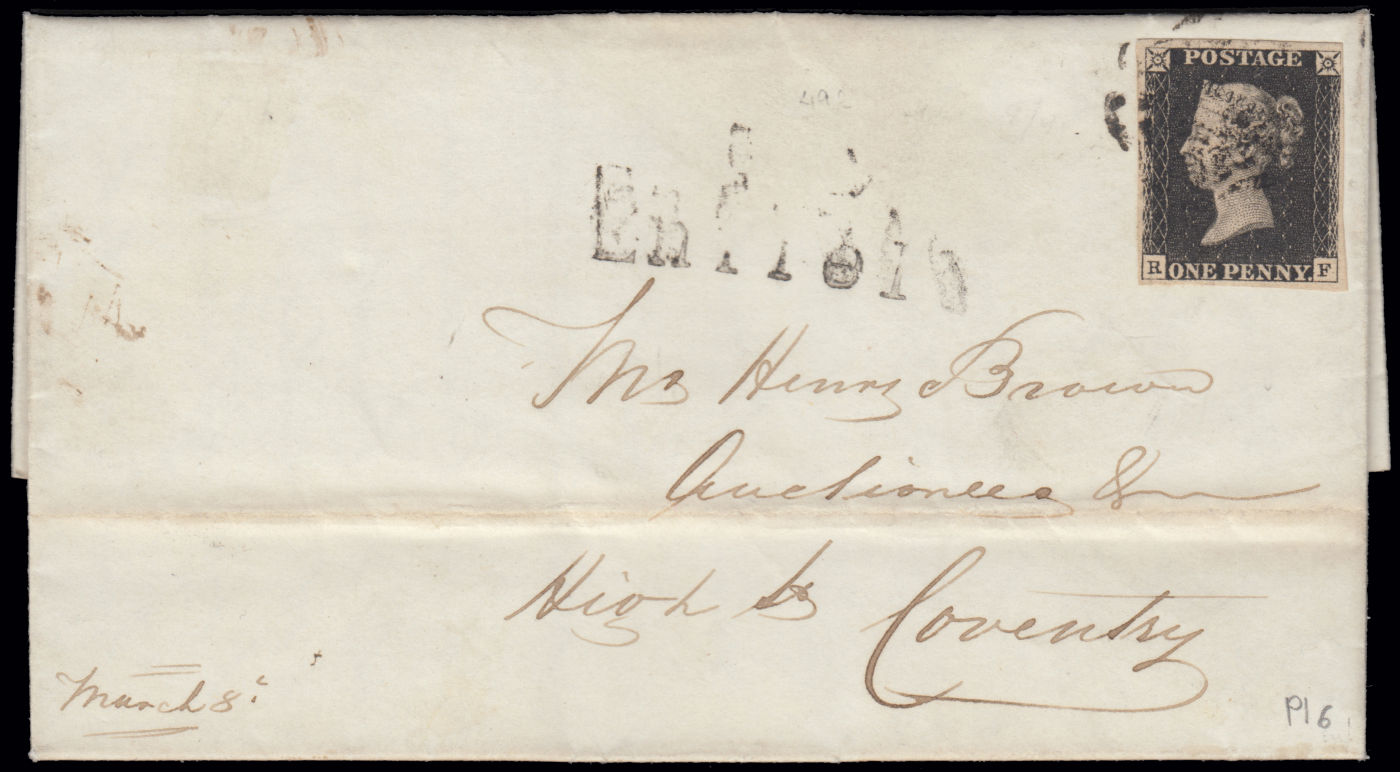 POSTAGE
ONE PENNY.
R F
Mr Henry Brown
Auctioneer &
High St
Coventry
March 8
Pl 6